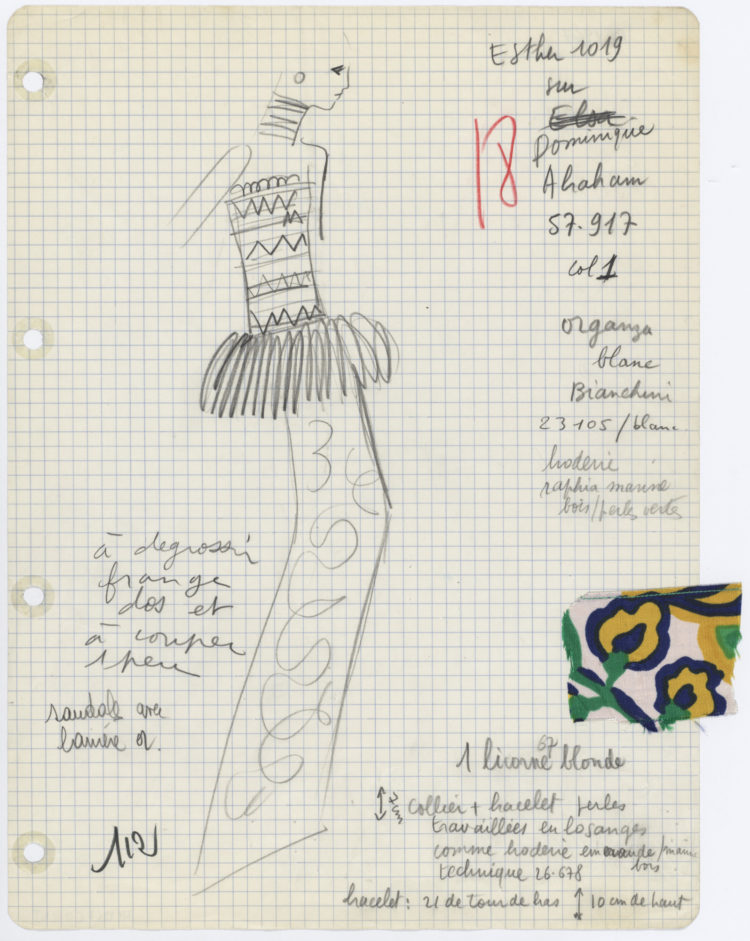 Esther 1019
sur
Elsa
Dominique
Abraham
57.917
col 1
organza
blanc
Bianchini
23105 / blanc
broderie
raphia marine
bois / perles vertes
à degrossir
frange
dos et
à couper
1 peu
sandale avec
lanière or.
1 licorne 67 blonde
collier + bracelet perles
travaillées en losanges
comme broderie emeraude / marine
bois
technique 26.678
bracelet : 21 de tour de bas 10 cm de haut
112